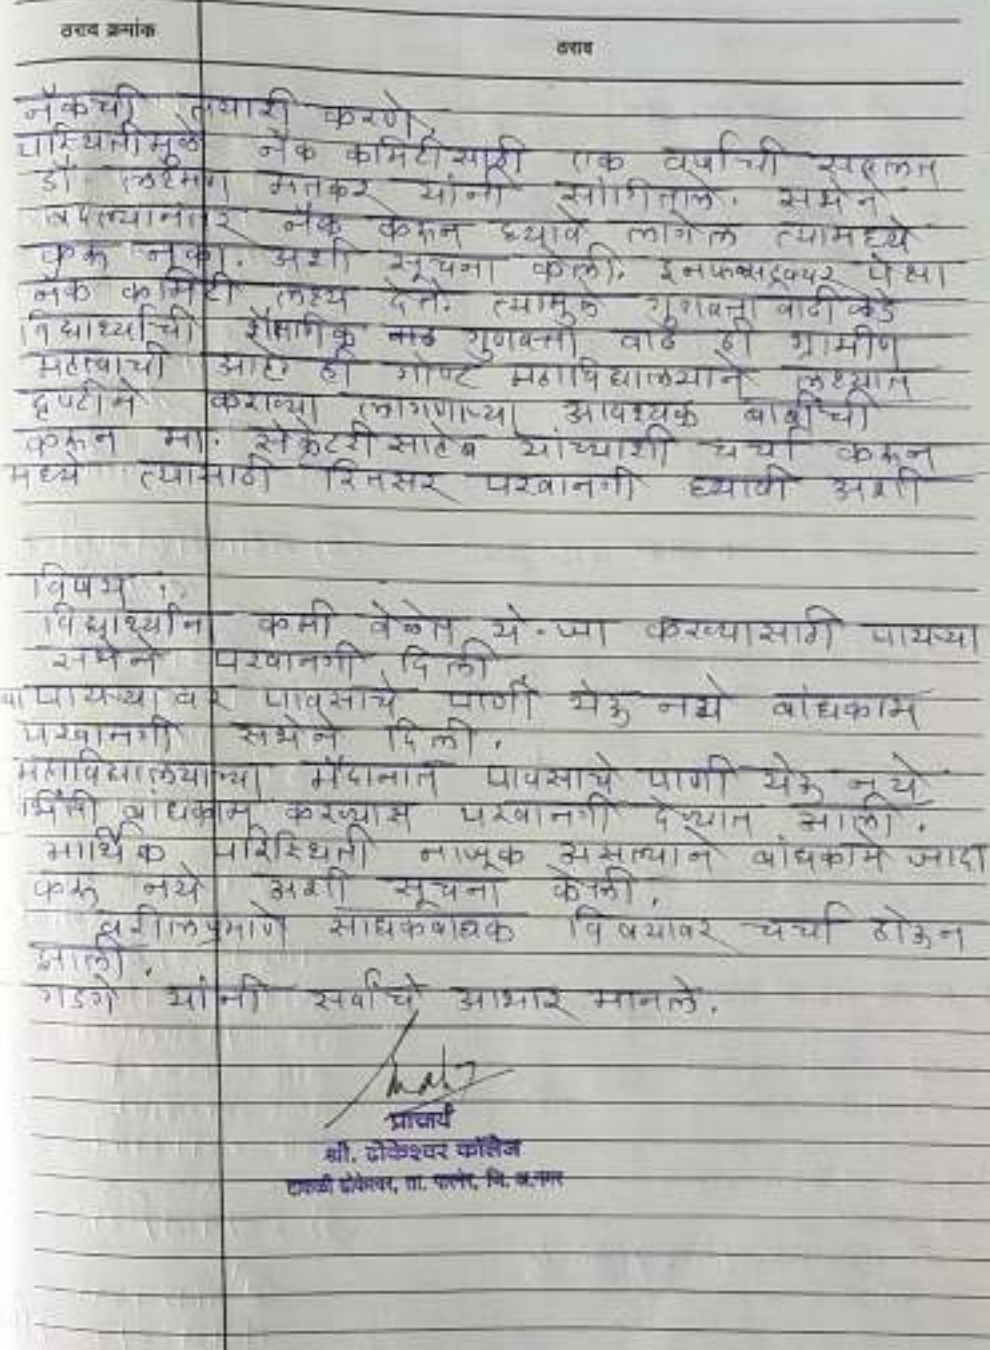 ठराव क्रमांक
ठराव
नॅकची तयारी करणे.
परिस्थितीमुळे नॅक कमिटीसाठी एक वर्षाची सवलत
डॉ. लक्ष्मण मतकर यांनी सांगितले. सभेने
संपल्यानंतर नॅक करून घ्यावे लागेल त्यामध्ये
करू नका. अशी सूचना केली. इनफ्रास्ट्रक्चर पेक्षा
नॅक कमिटी लक्ष्य देते. त्यामुळे गुणवत्ता वाढीकडे
विद्यार्थ्यांची शैक्षणिक गुणवत्ता वाढ ही ग्रामीण
महत्वाची आहे ही गोष्ट महाविद्यालयाने लक्ष्यात
दृष्टीने कराव्या लागणाऱ्या आवश्यक बाबींची
करून मा. सेक्रेटरी साहेब यांच्याशी चर्चा करून
मध्ये त्यासाठी रितसर परवानगी घ्यावी अशी
विषय :
विद्यार्थ्यांना कमी वेळेत ये-जा करण्यासाठी पायऱ्या
सभेने परवानगी दिली
पायऱ्यावर पावसाचे पाणी येऊ नये बांधकाम
परवानगी सभेने दिली.
महाविद्यालयाच्या मैदानात पावसाचे पाणी येऊ नये
भिंती बांधकाम करण्यास परवानगी देण्यात आली.
आर्थिक परिस्थिती नाजूक असल्याने बांधकामे जादा
करू नये अशी सूचना केली.
वरीलप्रमाणे साधकबाधक विषयांवर चर्चा होऊन
झाली.
गडगे यांनी सर्वांचे आभार मानले.
प्राचार्य
श्री. ढोकेश्वर कॉलेज
टाकळी ढोकेश्वर, ता. पारनेर, जि. अ.नगर